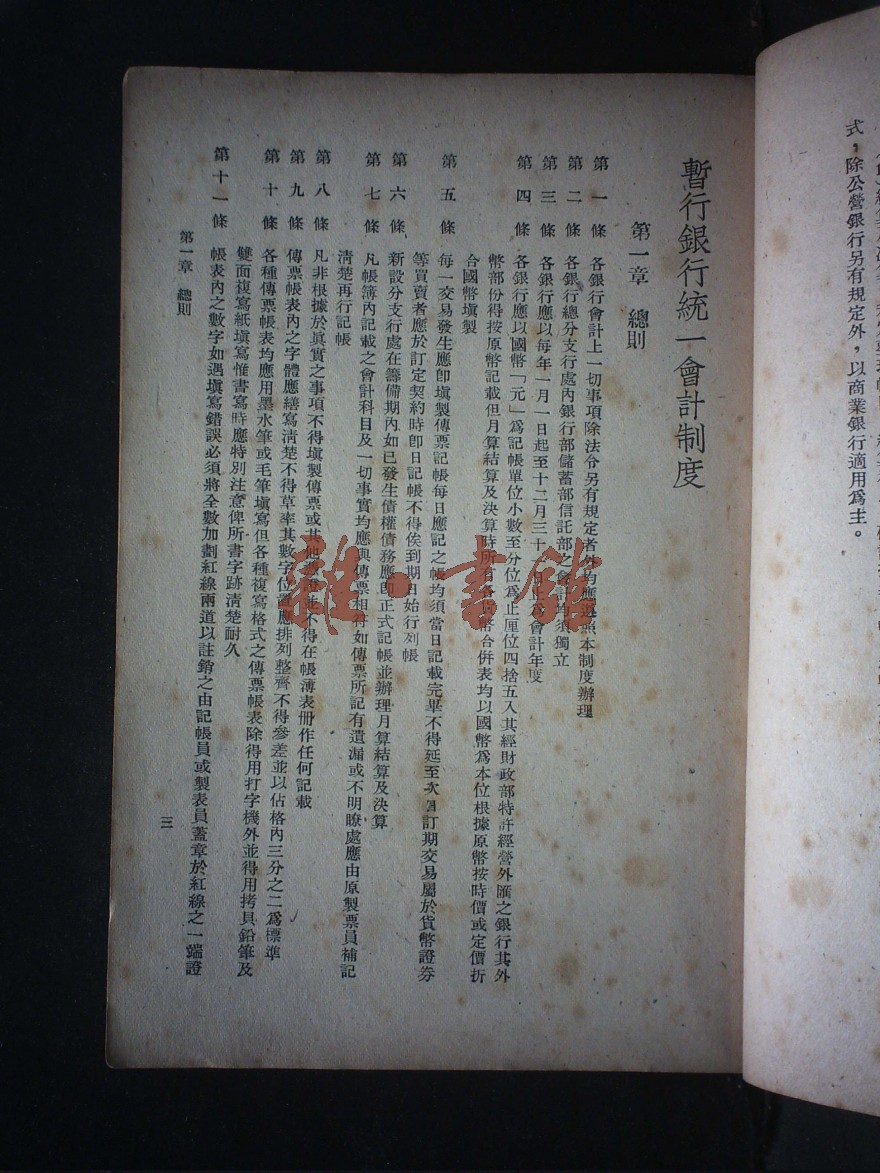 式，除公營銀行另有規定外，以商業銀行適用爲主。
暫行銀行統一會計制度
第一章　總則
第一條　各銀行會計上一切事項除法令另有規定者外均應遵照本制度辦理
第二條　各銀行總分支行處內銀行部儲蓄部信託部之會計均須獨立
第三條　各銀行應以每年一月一日起至十二月三十一日止爲會計年度
第四條　各銀行應以國幣「元」爲記帳單位小數至分位爲止厘位四捨五入其經財政部特許經營外匯之銀行其外
幣部份得按原幣記載但月算結算及決算時所有各該幣合併表均以國幣爲本位根據原幣按時價或定價折
合國幣塡製
第五條　每一交易發生應卽塡製傳票記帳每日應記之帳均須當日記載完畢不得延至次日訂期交易屬於貨幣證券
等買賣者應於訂定契約時卽日記帳不得俟到期日始行列帳
第六條　新設分支行處在籌備期內如已發生債權債務應卽正式記帳並辦理月算結算及決算
第七條　凡帳簿內記載之會計科目及一切事實均應與傳票相符如傳票所記有遺漏或不明瞭處應由原製票員補記
淸楚再行記帳
第八條　凡非根據於眞實之事項不得塡製傳票或其他憑證並不得在帳薄表册作任何記載
第九條　傳票帳表內之字體應繕寫淸楚不得草率其數字位置應排列整齊不得參差並以佔格內三分之二爲標準
第十條　各種傳票帳表均應用墨水筆或毛筆塡寫但各種複寫格式之傳票帳表除得用打字機外並得用拷貝鉛筆及
雙面複寫紙塡寫惟書寫時應特別注意俾所書字跡淸楚耐久
第十一條　帳表內之數字如遇塡寫錯誤必須將全數加劃紅線兩道以註銷之由記帳員或製表員蓋章於紅線之一端證
第一章　總則
三
雜·書館